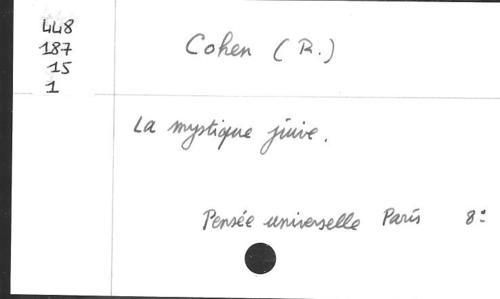 448
187
15
1
Cohen (R.)
La mystique juive.
Pensée universelle Paris 8: